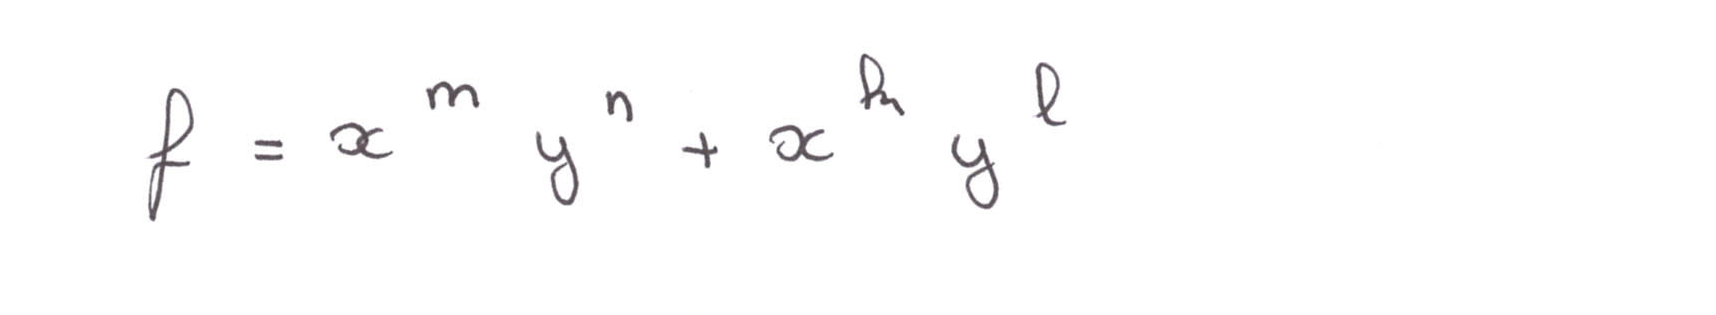 f = x^m y^n + x^k y^l